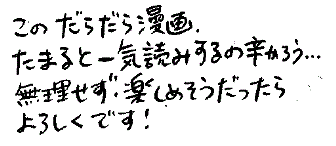 この だらだら漫画、
たまると一気読みするの辛かろう…
無理せず・楽しめそうだったら
よろしくです!